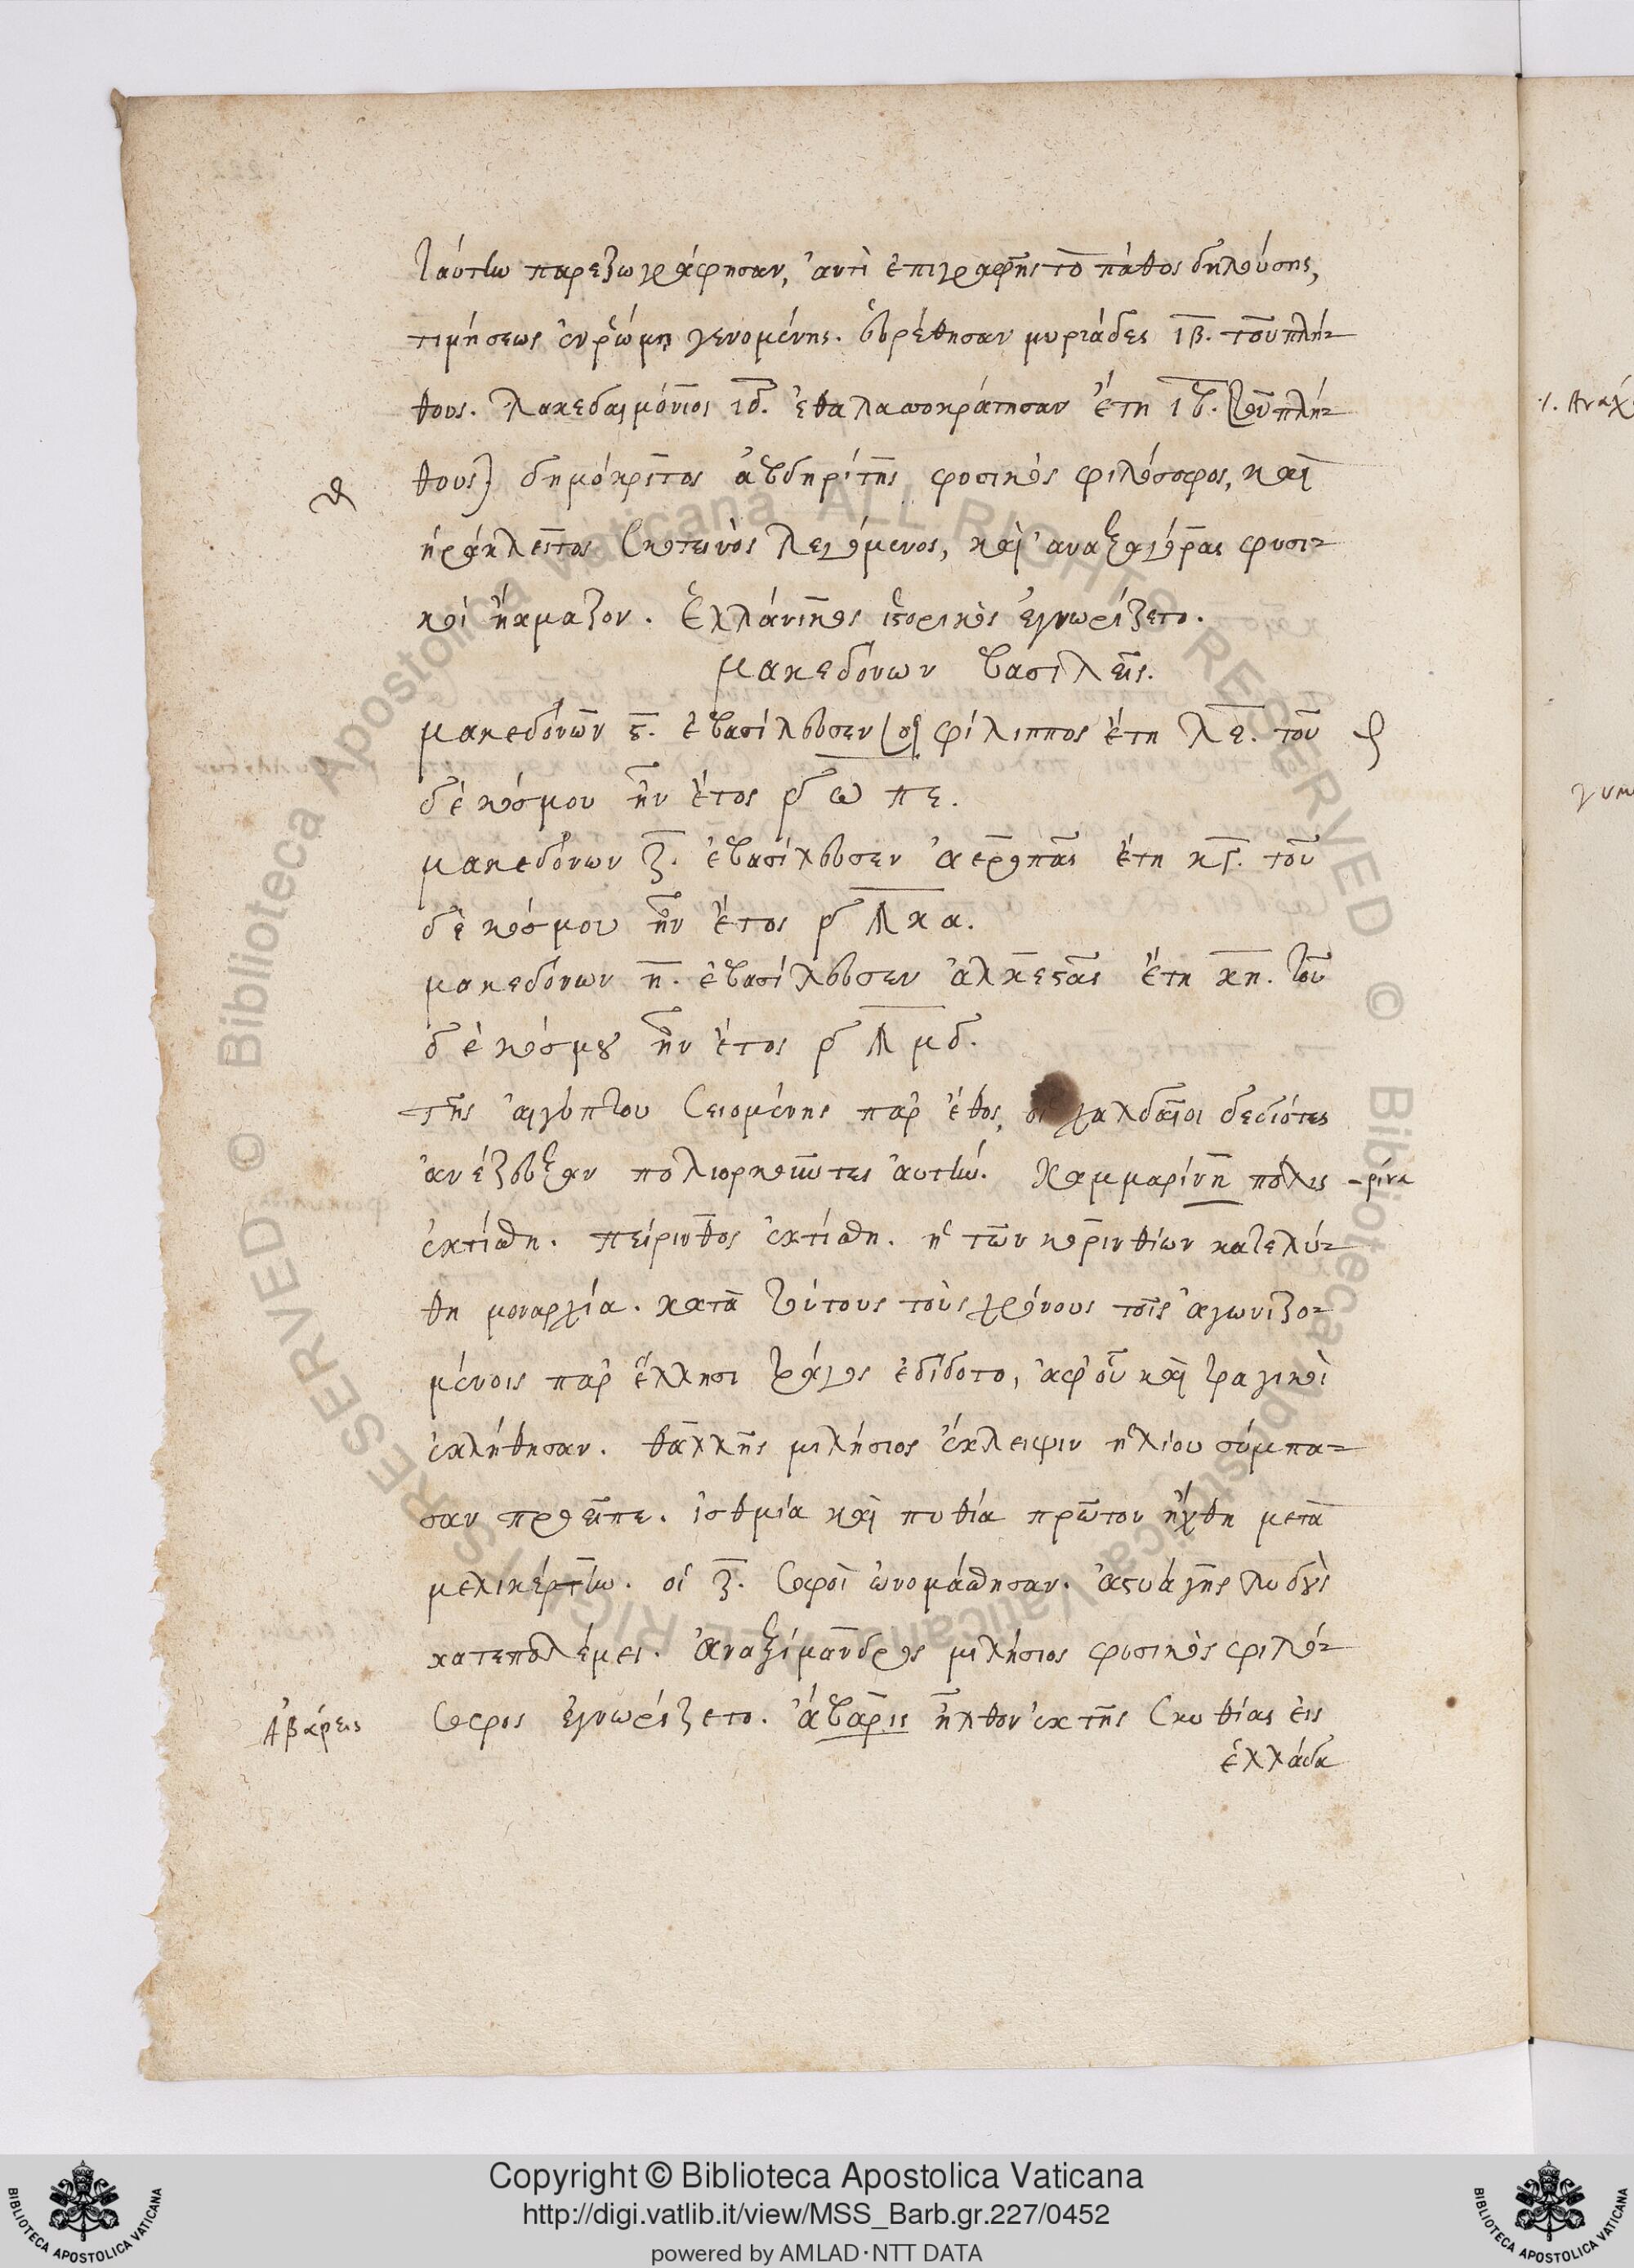 ταύτην παρεζωγράφησαν, ἀντὶ ἐπιγραφῆς τὸ πάθος δηλούσης,
τιμήσεως ἐν ῥώμη γενομένης. εὑρέθησαν μυριάδες ιβ. τοῦ πλή-
θους. λακεδαιμόνιοι ιδ. ἐθαλασσοκράτησαν ἔτη ιβ. [τοῦ πλή-
θους] δημόκριτος ἀβδηρίτης φυσικὸς φιλόσοφος, καὶ
ἡράκλειτος σκοτεινὸς λεγόμενος, καὶ ἀναξαγόρας φυσι-
κοὶ ἤκμαζον. ἑλλάνικος ἱστορικὸς ἐγνωρίζετο.
μακεδόνων βασιλεῖς.
μακεδόνων ϛ. ἐβασίλευσεν [ὁ] φίλιππος ἔτη λε. τοῦ
δὲ κόσμου ἦν ἔτος ͵δωπε.
μακεδόνων ζ. ἐβασίλευσεν ἀεροπᾶς ἔτη κγ. τοῦ
δὲ κόσμου ἦν ἔτος ͵δϡκα.
μακεδόνων η. ἐβασίλευσεν ἀλκεστᾶς ἔτη κη. τοῦ
δὲ κόσμου ἦν ἔτος ͵δϡμδ.
τῆς αἰγύπτου σειομένης παρ' ἔθος, οἱ χαλδαῖοι δεδιότες
ἀνέζευξαν πολιορκοῦντες αὐτήν. καμμαρίνη πόλις -ρίνα
ἐκτίσθη. πείρινθος ἐκτίσθη. ἡ τῶν κορινθίων κατελύ-
θη μοναρχία. κατὰ τούτους τοὺς χρόνους τοῖς ἀγωνιζο-
μένοις παρ' ἕλλησι τράγος ἐδίδοτο, ἀφ' οὗ καὶ τραγικοὶ
ἐκλήθησαν. θαλλῆς μιλήσιος ἔκλειψιν ἡλίου σύμπα-
σαν προεῖπε. ἰσθμία καὶ πυθία πρῶτον ἤχθη μετὰ
μελικέρτην. οἱ ζ. σοφοὶ ὠνομάσθησαν. ἀστυάγης λυδοὺς
κατεπολέμει. ἀναξίμανδρος μιλήσιος φυσικὸς φιλό-
Ἀβάρεις σοφος ἐγνωρίζετο. ἄβαρις ἦλθον ἐκ τῆς σκυθίας εἰς
ἑλλάδα
Copyright © Biblioteca Apostolica Vaticana
http://digi.vatlib.it/view/MSS_Barb.gr.227/0452
powered by AMLAD·NTT DATA
BIBLIOTECA APOSTOLICA VATICANA
BIBLIOTECA APOSTOLICA VATICANA